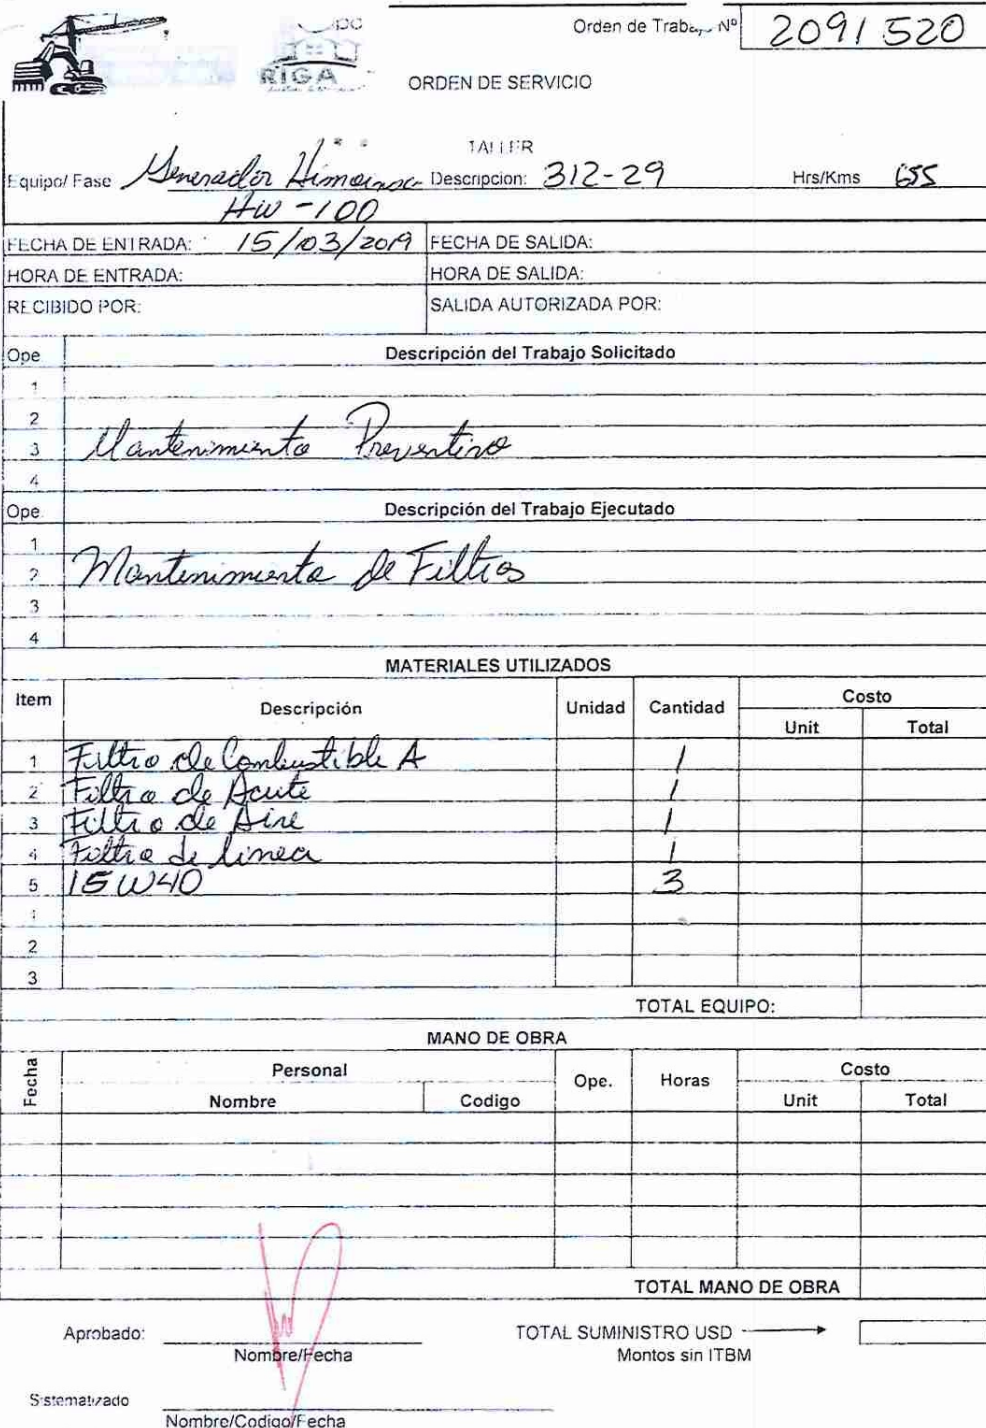 Orden de Trabajo Nº 2091520
RIGA
ORDEN DE SERVICIO
TALLER
Equipo/ Fase Generador Himoinsa Descripcion: 312-29 Hrs/Kms 655
HW-100
FECHA DE ENTRADA: 15/03/2019 FECHA DE SALIDA:
HORA DE ENTRADA: HORA DE SALIDA:
RECIBIDO POR: SALIDA AUTORIZADA POR:
Ope Descripción del Trabajo Solicitado
1
2
3 Mantenimiento Preventivo
4
Ope. Descripción del Trabajo Ejecutado
1
2 Mantenimiento de Filtros
3
4
MATERIALES UTILIZADOS
Item Descripción Unidad Cantidad Costo
Unit Total
1 Filtro de Combustible A 1
2 Filtro de Aceite 1
3 Filtro de Aire 1
4 Filtro de linea 1
5 15W40 3
1
2
3
TOTAL EQUIPO:
MANO DE OBRA
Fecha Personal Ope. Horas Costo
Nombre Codigo Unit Total
TOTAL MANO DE OBRA
Aprobado: TOTAL SUMINISTRO USD
Nombre/Fecha Montos sin ITBM
Sistematizado
Nombre/Codigo/Fecha